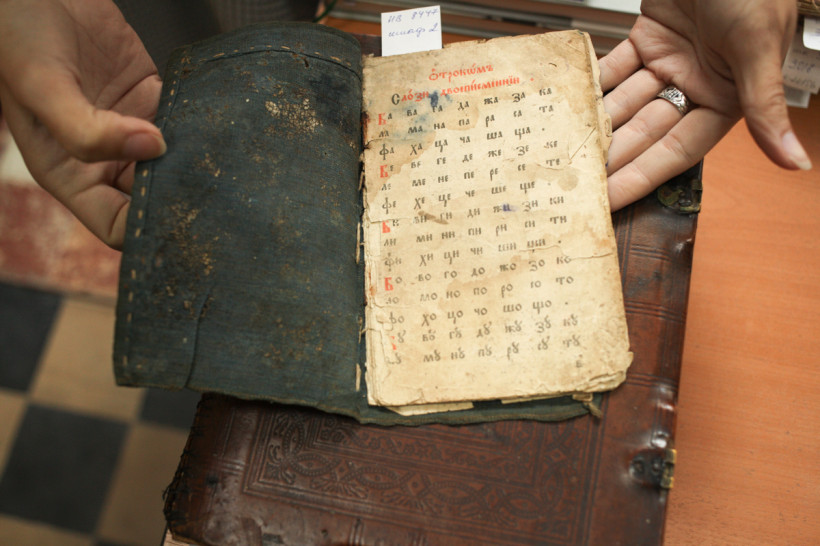 Ѻтрокѡмъ
Слозѝ двоеписменнїи
Ба ва га да жа за ка
ла ма на па ра са та
фа ха ца ча ша ща .
Бе ве ге де же зе ке
ле ме не пе ре се те
фе хе це че ше ще .
Би ви ги ди жи зи ки
ли ми ни пи ри си ти
фи хи ци чи ши щи .
Бо во го до жо зо ко
ло мо но по ро со то
фо хо цо чо шо що .
Бꙋ вꙋ гꙋ дꙋ жꙋ зꙋ кꙋ
лꙋ мꙋ нꙋ пꙋ рꙋ сꙋ тꙋ